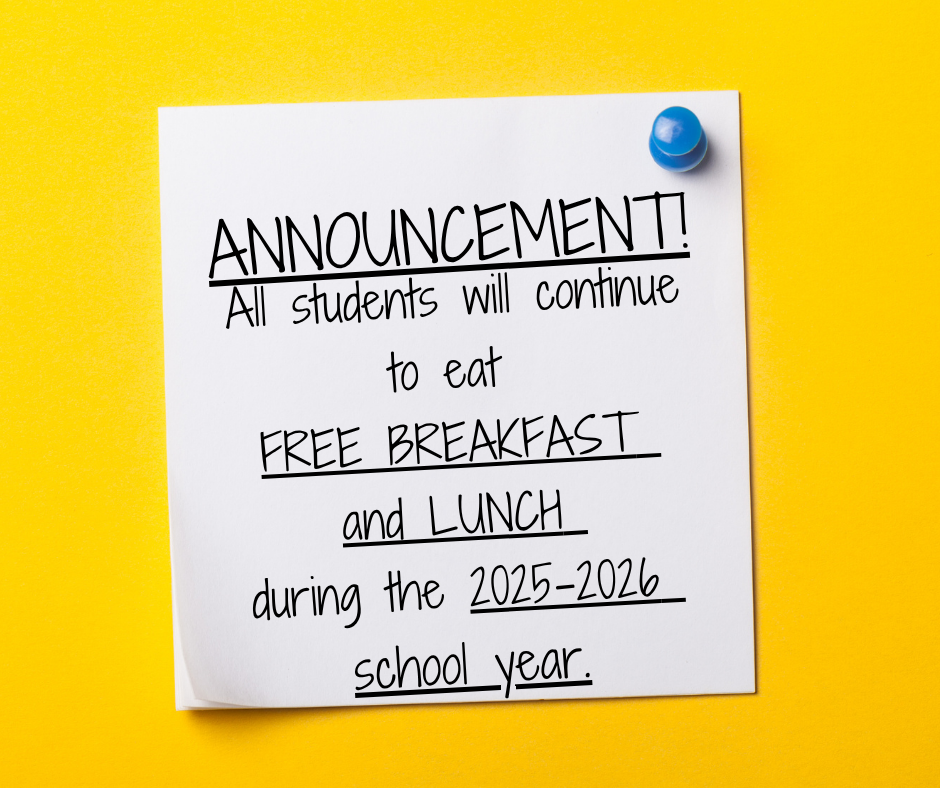 ANNOUNCEMENT!
All students will continue
to eat
FREE BREAKFAST
and LUNCH
during the 2025-2026
school year.